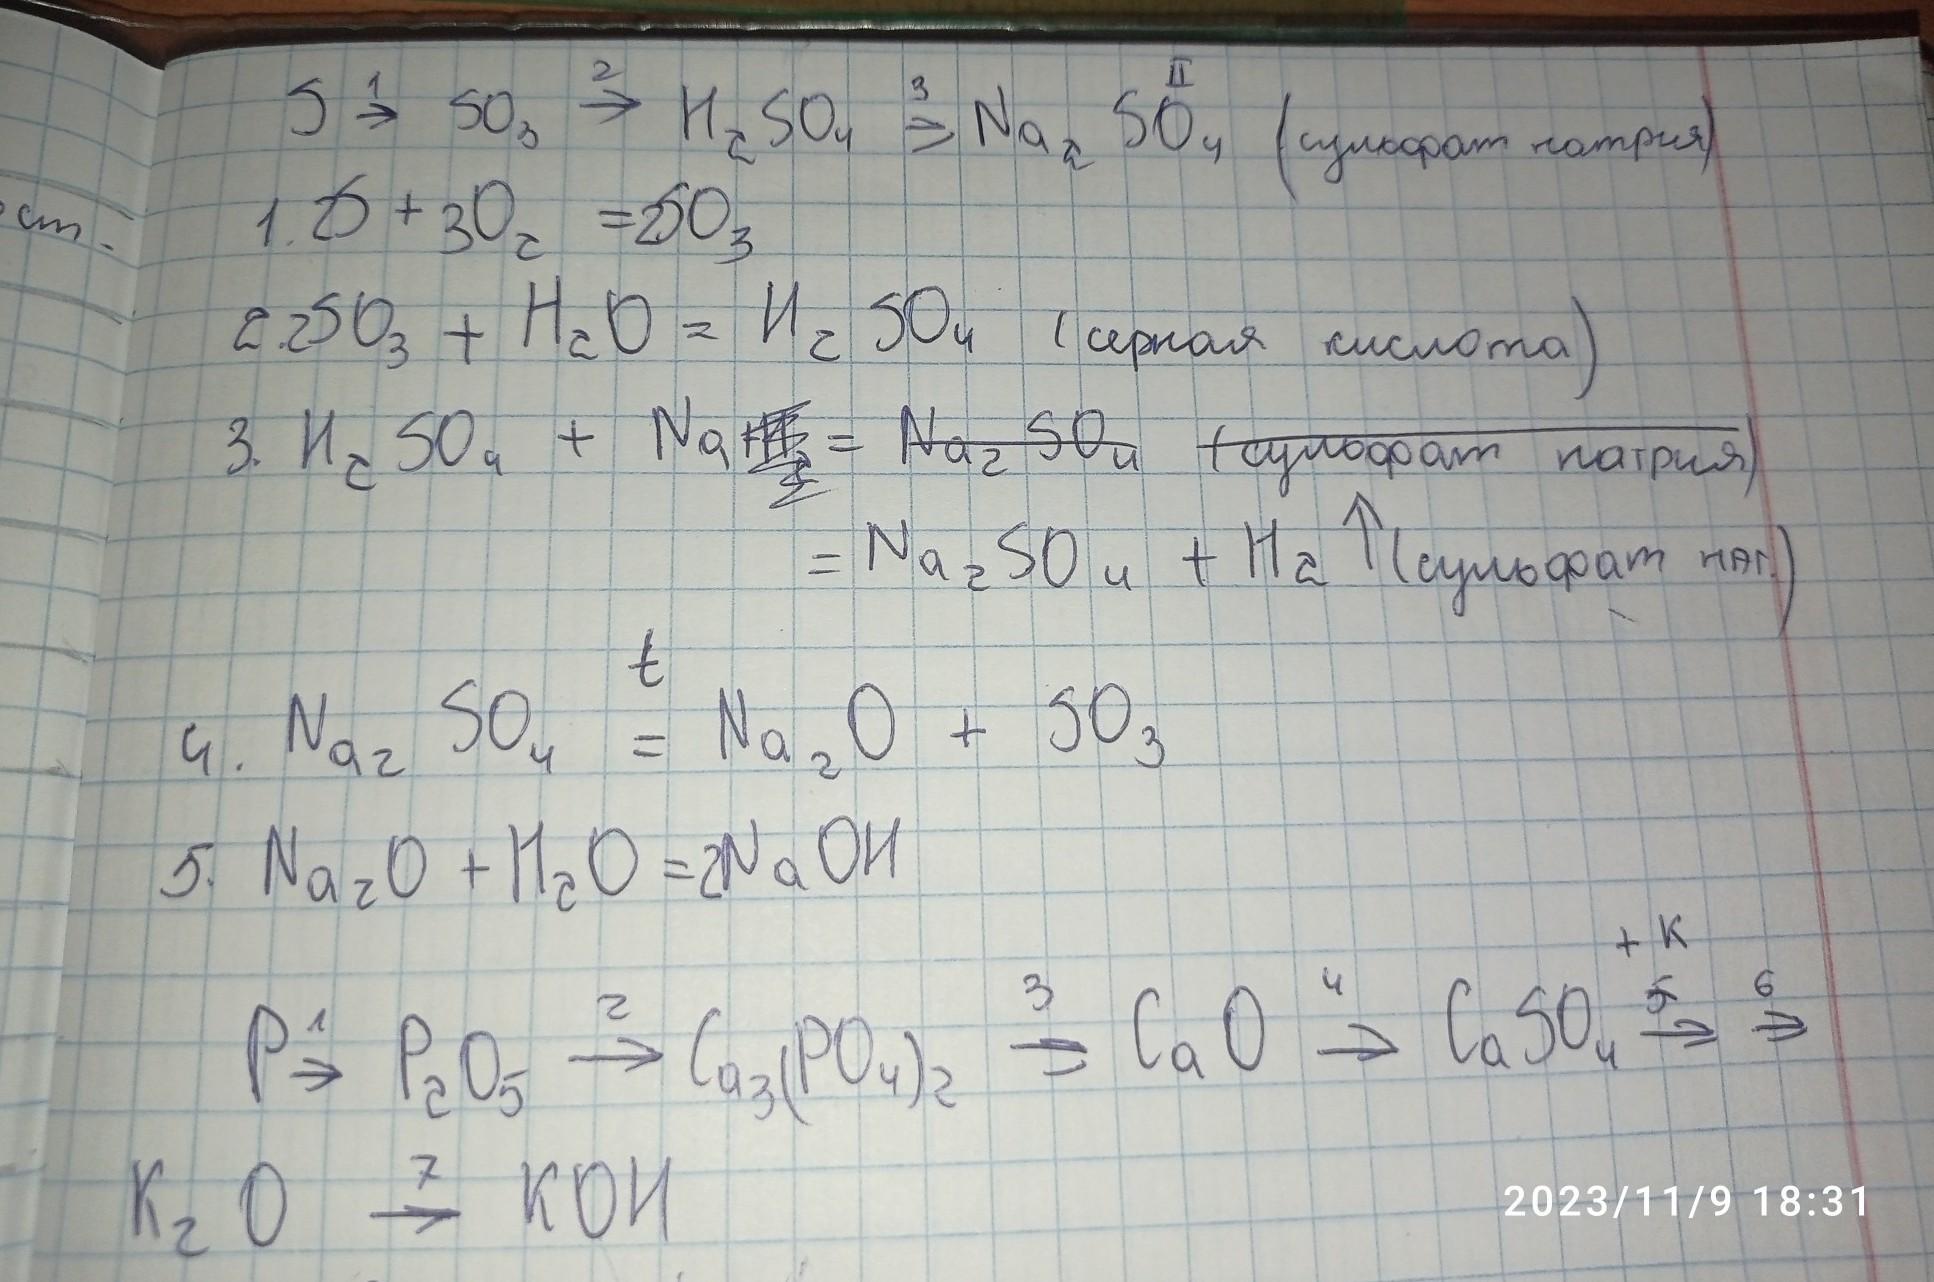 S →¹ SO₃ →² H₂SO₄ →³ Na₂SO₄ᴵᴵ (сульфат натрия)
ст.
1. 2S + 3O₂ = 2SO₃
2. 2SO₃ + H₂O = H₂SO₄ (серная кислота)
3. H₂SO₄ + Na = Na₂SO₄ (сульфат натрия)
= Na₂SO₄ + H₂↑ (сульфат нат.)
t
4. Na₂SO₄ = Na₂O + SO₃
5. Na₂O + H₂O = 2NaOH
+ K
P →¹ P₂O₅ →² Ca₃(PO₄)₂ →³ CaO →⁴ CaSO₄ →⁵ →⁶
K₂O →⁷ KOH
2023/11/9 18:31